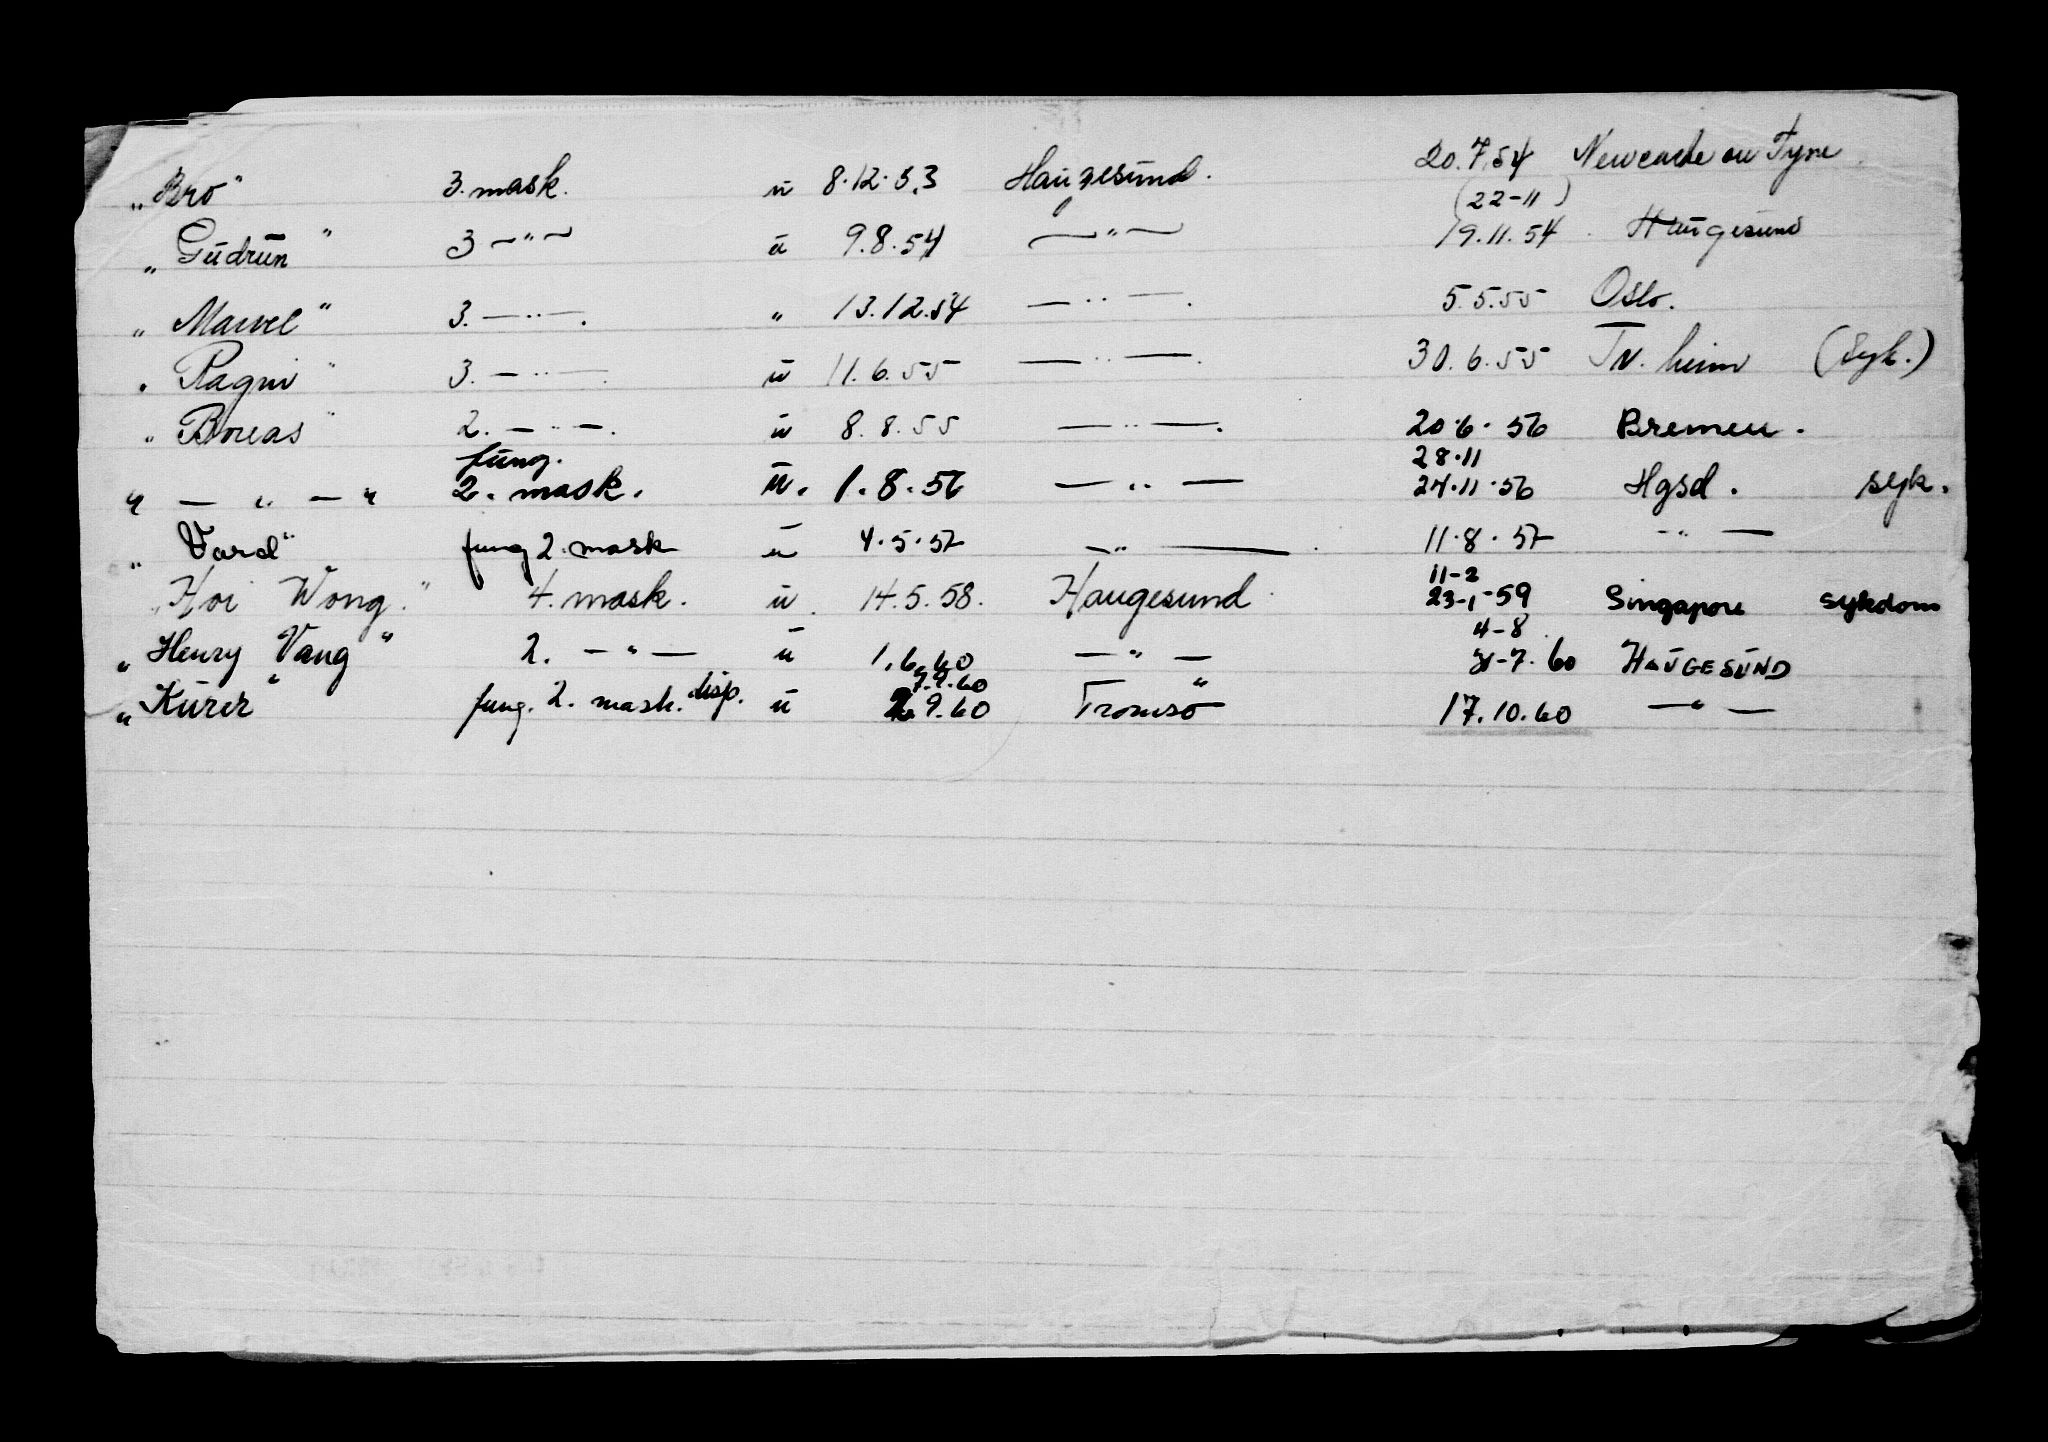 „Bro" 3. mask. u 8.12.53 Haugesund. 20.7.54 Newcastle on Tyne
(22-11)
„Gudrun" 3 —"— u 9.8.54 —"— 19.11.54 Haugesund
„Marvel" 3. —"—. " 13.12.54 —"—. 5.5.55 Oslo.
„Ragni" 3. —"—. u 11.6.55 —"—. 30.6.55 Tr.heim (syk.)
„Boreas" 2. —"—. u 8.8.55 —"—. 20.6.56 Bremen.
fung. 28.11
„—"—" 2. mask. u. 1.8.56 —"— 24.11.56 Hgsd. syk.
„Vard" fung 2. mask u 4.5.57 —"— 11.8.57 —"—
11-2
„Hoi Wong." 4. mask. u. 14.5.58. Haugesund 23-1-59 Singapore sykdom
4-8
„Henry Vang" 2. —"— u 1.6.60 —"— 31-7.60 HAUGESUND
7.9.60
„Kurer" fung. 2. mask. disp. u 9.60 Tromsö 17.10.60 —"—